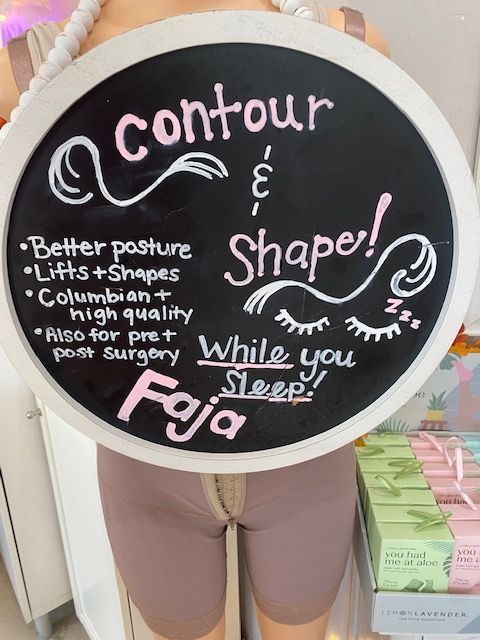 contour
&
Shape!
• Better posture
• Lifts + Shapes
• Columbian +
high quality
• Also for pre +
post surgery
zzz
While you
Sleep!
Faja
you had
me at aloe
you
me a
LEMONLAVENDER.